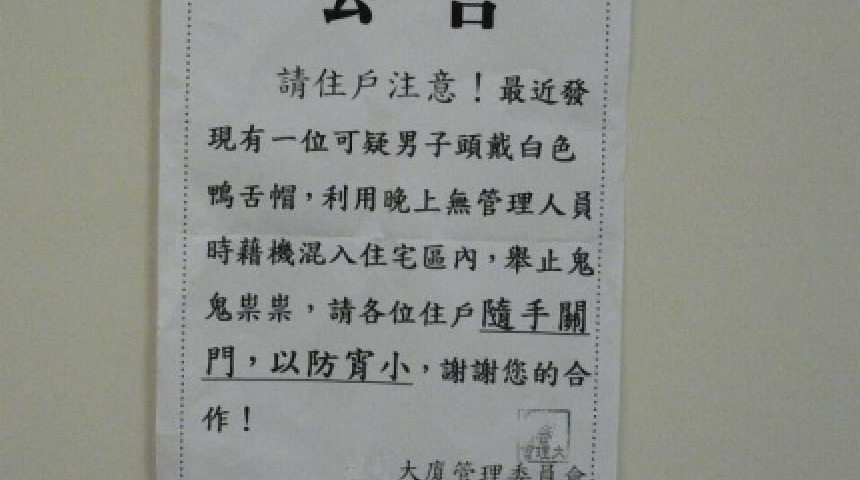 公告
請住戶注意！最近發
現有一位可疑男子頭戴白色
鴨舌帽，利用晚上無管理人員
時藉機混入住宅區內，舉止鬼
鬼祟祟，請各位住戶隨手關
門，以防宵小，謝謝您的合
作！
大廈管理委員會